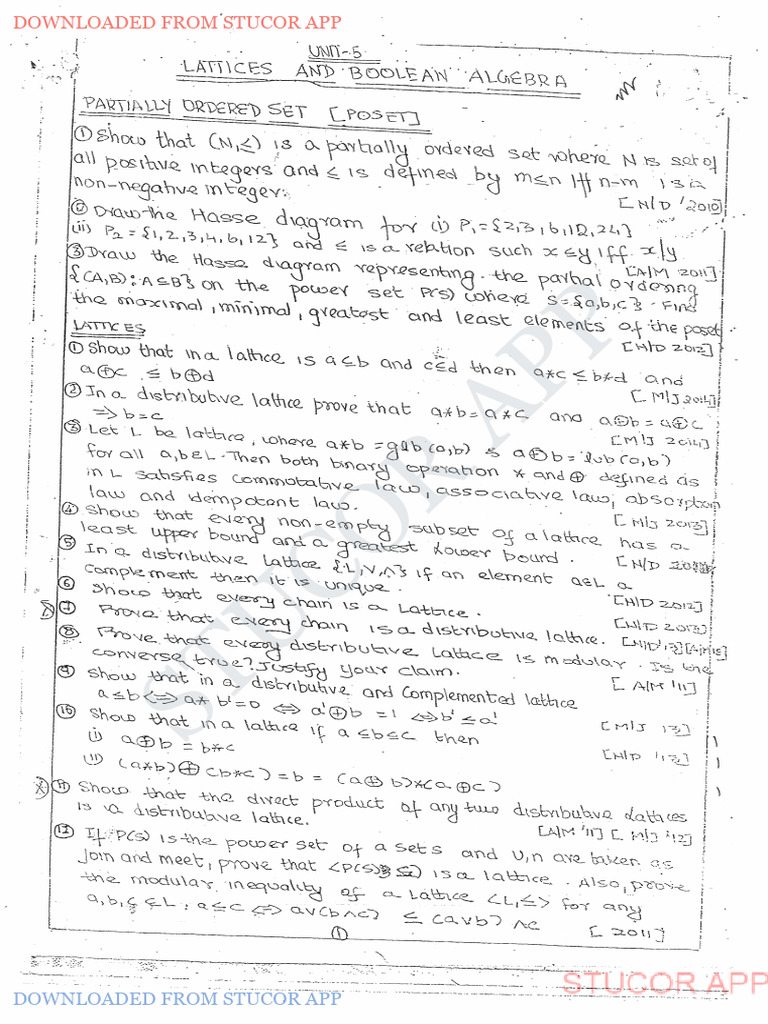 DOWNLOADED FROM STUCOR APP
UNIT-5
LATTICES AND BOOLEAN ALGEBRA
PARTIALLY ORDERED SET [POSET]
① Show that (N,≤) is a partially ordered set where N is set of
all positive integers and ≤ is defined by m≤n iff n-m is a
non-negative integer.
[N/D '2010]
② Draw the Hasse diagram for (i) P₁={2,3,6,12,24}
(ii) P₂={1,2,3,4,6,12} and ≤ is a relation such x≤y iff x/y
[A/M 2011]
③ Draw the Hasse diagram representing the partial ordering
{(A,B): A⊆B} on the power set P(s) where S={a,b,c}. Find
the maximal, minimal, greatest and least elements of the poset
[N/D 2012]
LATTICES
① Show that in a lattice is a≤b and c≤d then a*c ≤ b*d and
a⊕c ≤ b⊕d
[M/J 2014]
② In a distributive lattice prove that a*b=a*c and a⊕b=a⊕c
⇒ b=c
[M/J 2014]
③ Let L be lattice, where a*b=glb(a,b) & a⊕b=lub(a,b)
for all a,b∈L. Then both binary operation * and ⊕ defined as
in L satisfies commutative law, associative law, absorption
law and idempotent law.
[M/J 2013]
④ Show that every non-empty subset of a lattice has a
least upper bound and a greatest lower bound.
[N/D
⑤ In a distributive lattice {L,V,∧} if an element a∈L a
complement then it is unique.
[N/D 2012]
⑥ Show that every chain is a Lattice.
[N/D 2013]
⑦ Prove that every chain is a distributive lattice. [N/D'13][A/M'15]
⑧ Prove that every distributive lattice is modular. Is the
converse true? Justify your claim.
[A/M '11]
⑨ Show that in a distributive and Complemented lattice
a≤b ⇔ a*b'=0 ⇔ a'⊕b=1 ⇔ b'≤a'
[M/J 13]
⑩ Show that in a lattice if a≤b≤c then
[N/D '13]
(i) a⊕b = b*c
(ii) (a*b)⊕(b*c)=b=(a⊕b)*(a⊕c)
⑪ Show that the direct product of any two distributive Lattices
is a distributive lattice.
[A/M '11] [M/J '12]
⑫ If P(s) is the power set of a set s and U,∩ are taken as
join and meet, prove that <P(s), ⊆> is a lattice. Also, prove
the modular inequality of a Lattice <L,≤> for any
a,b,c∈L, a≤c ⇔ aV(b∧c) ≤ (aVb)∧c
[2011]
①
STUCOR APP
STUCOR APP
DOWNLOADED FROM STUCOR APP